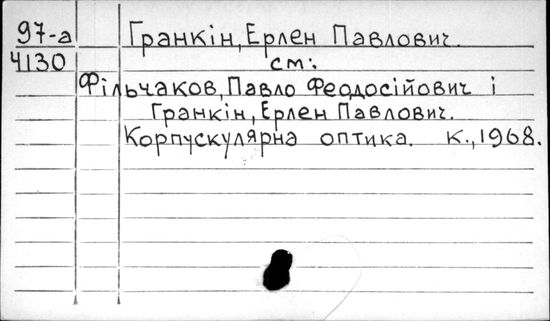 97-а Гранкін, Ерлен Павлович.
4130 см:
Фільчаков, Павло Феодосійович і
Гранкін, Ерлен Павлович.
Корпускулярна оптика. к., 1968.